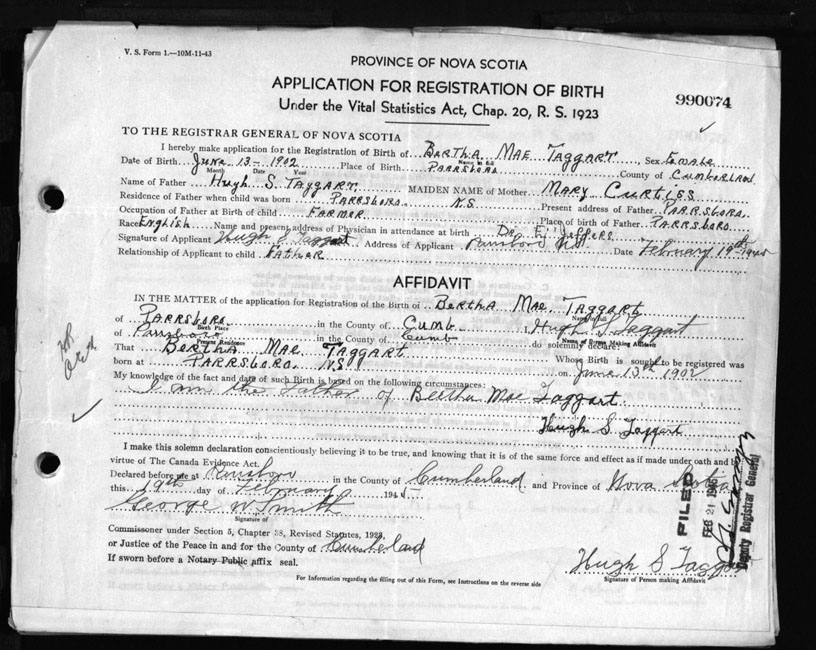 V. S. Form 1.—10M-11-43
PROVINCE OF NOVA SCOTIA
APPLICATION FOR REGISTRATION OF BIRTH
Under the Vital Statistics Act, Chap. 20, R. S. 1923
990674
TO THE REGISTRAR GENERAL OF NOVA SCOTIA
I hereby make application for the Registration of Birth of BERTHA MAE TAGGART. Sex Female
Name in full
Date of Birth June 13 - 1902 Place of Birth PARRSBORO County of CUMBERLAND
Month Date Year
Name of Father Hugh S. TAGGART MAIDEN NAME of Mother MARY CURTISS
Residence of Father when child was born PARRSBORO. N.S Present address of Father PARRSBORO.
Occupation of Father at Birth of child FARMER Place of birth of Father PARRSBORO
Race English Name and present address of Physician in attendance at birth DR. E. JEFFERS
Signature of Applicant Hugh S. Taggart Address of Applicant Parrsboro NS Date February 19th 1945
Relationship of Applicant to child FATHER
AFFIDAVIT
IN THE MATTER of the application for Registration of the Birth of BERTHA MAE TAGGART
Name in full
of PARRSBORO in the County of CUMB. I, Hugh S. Taggart
Birth Place
Name of Person Making Affidavit
of Parrsboro in the County of Cumb do solemnly declare:
Present Residence
That BERTHA MAE TAGGART Whose Birth is sought to be registered was
born at PARRSBORO. NS on June 13th 1902
My knowledge of the fact and date of such Birth is based on the following circumstances:
I am the Father of Bertha Mae Taggart.
Hugh S. Taggart
I make this solemn declaration conscientiously believing it to be true, and knowing that it is of the same force and effect as if made under oath and by
virtue of The Canada Evidence Act.
Declared before me at Parrsboro in the County of Cumberland and Province of Nova Scotia
this 19th day of February 1945-
George W Smith
Signature of
Commissioner under Section 5, Chapter 38, Revised Statutes, 1923,
or Justice of the Peace in and for the County of Cumberland
If sworn before a Notary Public affix seal.
Hugh S Taggart
Signature of Person making Affidavit
For Information regarding the filling out of this Form, see Instructions on the reverse side
FILED
FEB 21 1945
Deputy Registrar General